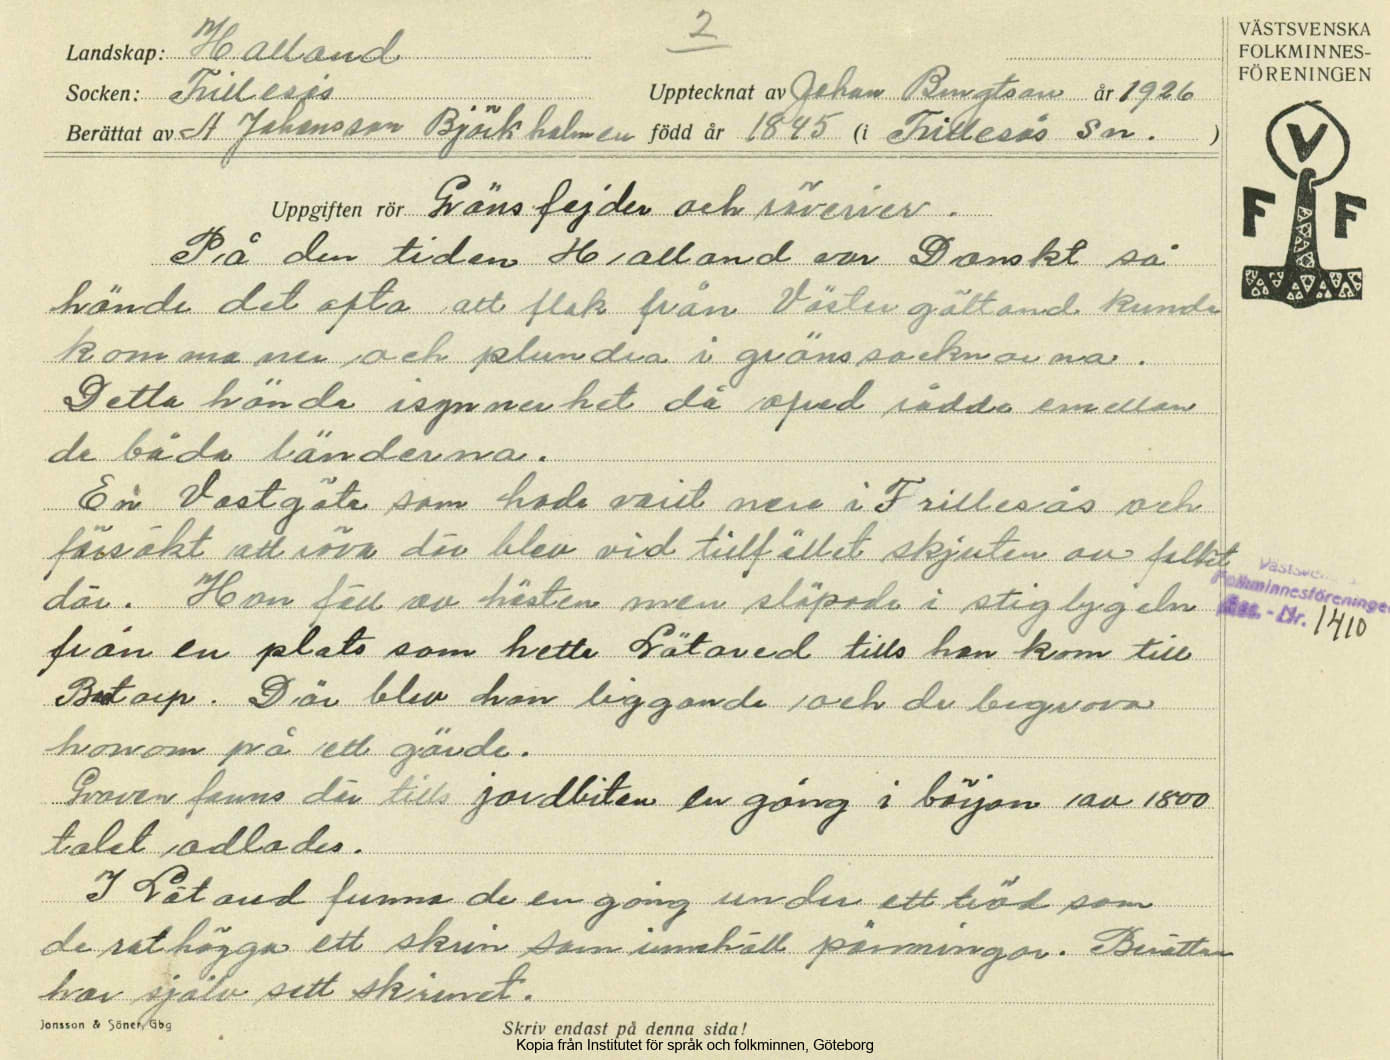 2
Landskap: Halland
Socken: Frillesås
Upptecknat av Johan Bengtson år 1926
Berättat av A Johansson Björkholmen född år 1845 (i Frillesås Sn. )
VÄSTSVENSKA
FOLKMINNES-
FÖRENINGEN
V
F F
Uppgiften rör Gräns fejder och röverier.
På den tiden Halland var Danskt så
hände det ofta att flok från Väster götland kunde
komma ner och plundra i gränssocknarna.
Detta hände isynnerhet då ofred rådde emellan
de båda länderna.
En Vestgöte som hade varit nere i Frillesås och
försökt att röva där blev vid tillfället skjuten av folket
där. Han föll av hästen men släpade i stigbygeln
från en plats som hette Lätared tills han kom till
Batorp. Där blev han liggande och de begrova
honom på ett gärde.
Graven fanns där tills jordbiten en gång i början av 1800
talet odlades.
I Lätared funna de en gång under ett träd som
de rothögga ett skrin som innehöll pänningar. Berättaren
har själv sett skrinet.
Västsvenska
Folkminnesföreningen
Acc. - Nr. 1410
Jonsson & Söner, Gbg
Skriv endast på denna sida!
Kopia från Institutet för språk och folkminnen, Göteborg